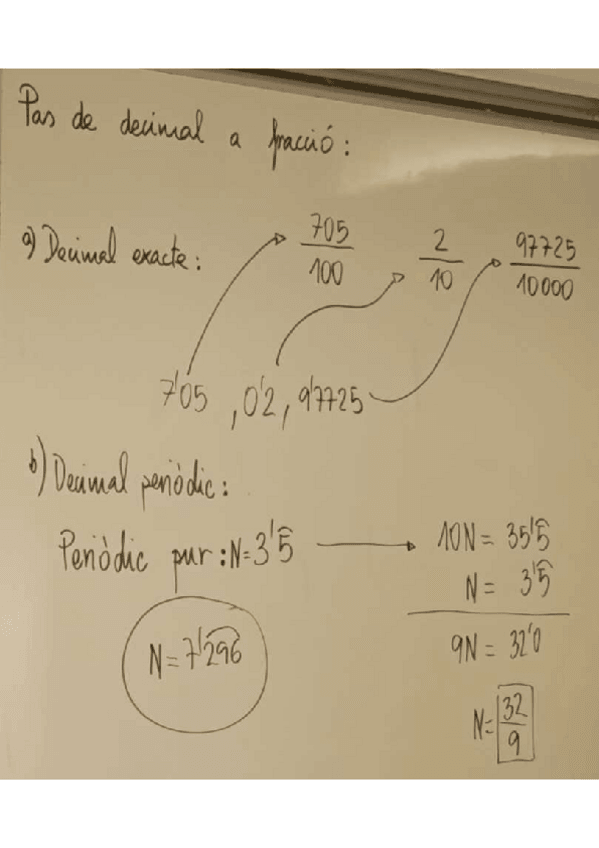 Pas de decimal a fracció:
a) Decimal exacte: 705/100 2/10 97725/10000
7'05, 0'2, 9'7725
b) Decimal periòdic:
Periòdic pur: N=3'5̂ → 10N = 35'5̂
N = 3'5̂
N=7'2͡96 9N = 32'0
N= 32/9